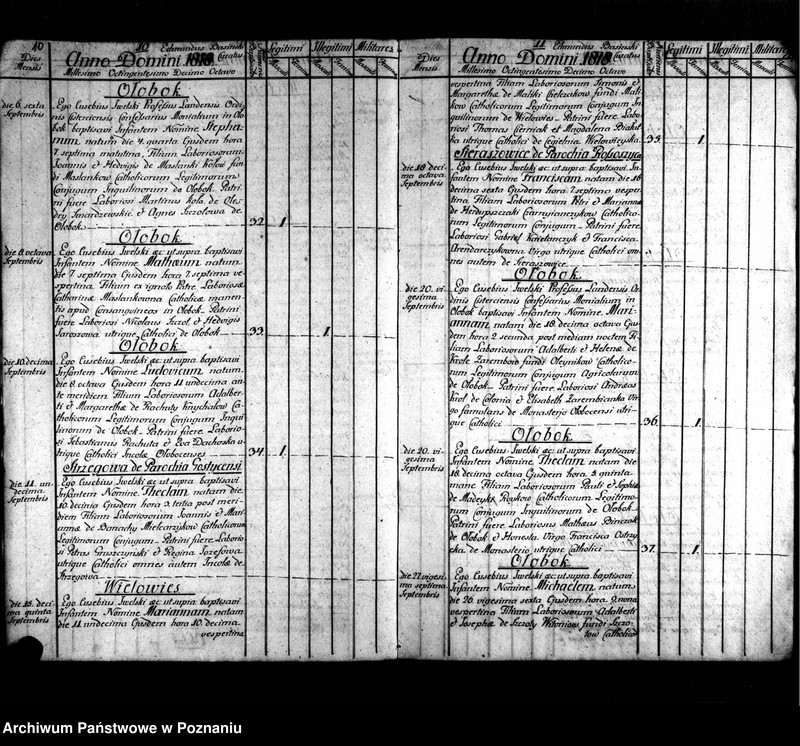 10
10 Edmundus Basinski Curatus
Dies Mensis
Anno Domini 1818
Millesimo Octingentesimo Decimo Octavo
Legitimi Illegitimi Militares
Olobok
die 6. sexta Septembris
Ego Eusebius Iwelski Profesus Landensis Ordi
nis Cisterciensis Confesarius Monialium in Olo
bok baptisavi Infantem Nomine Stepha
num natum die 4. quarta Ejusdem hora
7. septima matutina, Filium Laboriosorum
Joannis et Hedvigis de Maslanki Kolow fun
di Maslankow Catholicorum Legitimorum
Conjugum Inquilinorum de Olobok. Patri
ni fuere Laboriosi Martinus Kola de Oles
dry Smarzewskie et Agnes Szczotowa de
Olobok
32 1
Olobok
die 8 octava Septembris
Ego Eusebius Iwelski ac ut supra baptisavi
Infantem Nomine Mathæum natum
die 7 septima Ejusdem hora 7 septima ve
spertina Filium ex ignoto Patre, Laboriosæ
Catharinæ Maslankowna Catholicæ manen
tis apud Consangvineos in Olobok. Patrini
fuere Laboriosi Nicolaus Szczol et Hedvigis
Jarosowa utrique Catholici de Olobok
33 1
Olobok
die 10 decima Septembris
Ego Eusebius Iwelski ac ut supra baptisavi
Infantem Nomine Ludovicum natum
die 8 octava Ejusdem hora 11 undecima an
te meridiem Filium Laboriosorum Adalber
ti et Margarethæ de Rachuty Knychalow Ca
tholicorum Legitimorum Conjugum Inqui
linorum de Olobok. Patrini fuere Laborio
si Sebastianus Rachuta et Eva Dachorska u
trique Catholici Incolæ Olobocenses
34 1
Strzegowa de Parochia Gostycensi
die 11. un decima Septembris
Ego Eusebius Iwelski ac ut supra baptisavi
Infantem Nomine Theclam natam die
10. decima Ejusdem hora 3. tertia post meri
diem Filiam Laboriosorum Joannis et Mari
annæ de Banachy Mielcarzykow Catholicorum
Legitimorum Conjugum. Patrini fuere Laborio
si Petrus Gruszczynski et Regina Jozefowa
utrique Catholici omnes autem Incolæ de
Strzegowa
Wielowies
die 15. deci ma quinta Septembris
Ego Eusebius Iwelski ac ut supra baptisavi
Infantem Nomine Mariannam natam
die 11 undecima Ejusdem hora 10. decima
vespertina
11 Edmundus Basinski Curatus
Dies Mensis
Anno Domini 1818
Millesimo Octingentesimo Decimo Octavo
Legitimi Illegitimi Militares
vespertina Filiam Laboriosorum Simonis et
Margarethæ de Maliki Chelzakow fundi Mali
kow Catholicorum Legitimorum Conjugum In
quilinorum de Wielowies. Patrini fuere Labo
riosi Thomas Cierniak et Magdalena Białut
ka utrique Catholici de Cegielnia Wielowieyska.
35 1
Sieraszowice de Parochia
die 18 deci ma octava Septembris
Ego Eusebius Iwelski ac ut supra baptisavi In
fantem Nomine Franciscam natam die 16
decima sexta Ejusdem hora 7 septima vesper
tina Filiam Laboriosorum Petri et Mariannæ
de Catholico
rum Legitimorum Conjugum. Patrini fuere
Laboriosi Gabriel et Francisca
Arendarczykowna Virgo utrique Catholici om
nes autem de Sieraszowice
Olobok
die 20. vi gesima Septembris
Ego Eusebius Iwelski Profesus Landensis Or
dinis Cisterciensis Confesarius Monialium in
Olobok baptisavi Infantem Nomine Mari
annam natam die 18. decima octava Ejus
dem hora 2 secunda post mediam noctem Fi
liam Laboriosorum Adalberti et Helenæ de
Krole Zarembow fundi Oleynikow Catholico
rum Legitimorum Conjugum Agricolarum
de Olobok. Patrini fuere Laboriosi Andreas
Krol de Colonia et Elisabeth Zarembianka Vir
go famulans de Monasterio Olobocensi utri
que Catholici
36. 1
Olobok
die 20. vi gesima Septembris
Ego Eusebius Iwelski ac ut supra baptisavi
Infantem Nomine Theclam natam die
18. decima octava Ejusdem hora 5 quinta
mane Filiam Laboriosorum Pauli et Sophiæ
de Madeyki Roykow Catholicorum Legitimo
rum Conjugum Inquilinorum de Olobok
Patrini fuere Laboriosus Mathæus Binczak
de Olobok et Honesta Virgo Francisca Ostrzy
cka de Monasterio utrique Catholici
37. 1
Olobok
die 27 viges ima septima Septembris
Ego Eusebius Iwelski ac ut supra baptisavi
Infantem Nomine Michaelem natum
die 26 vigesima sexta Ejusdem hora 9 nona
vespertina Filium Laboriosorum Adalberti
et Josephæ de Szczoły Witoniow fundi Szczo
low Catholico
Archiwum Państwowe w Poznaniu